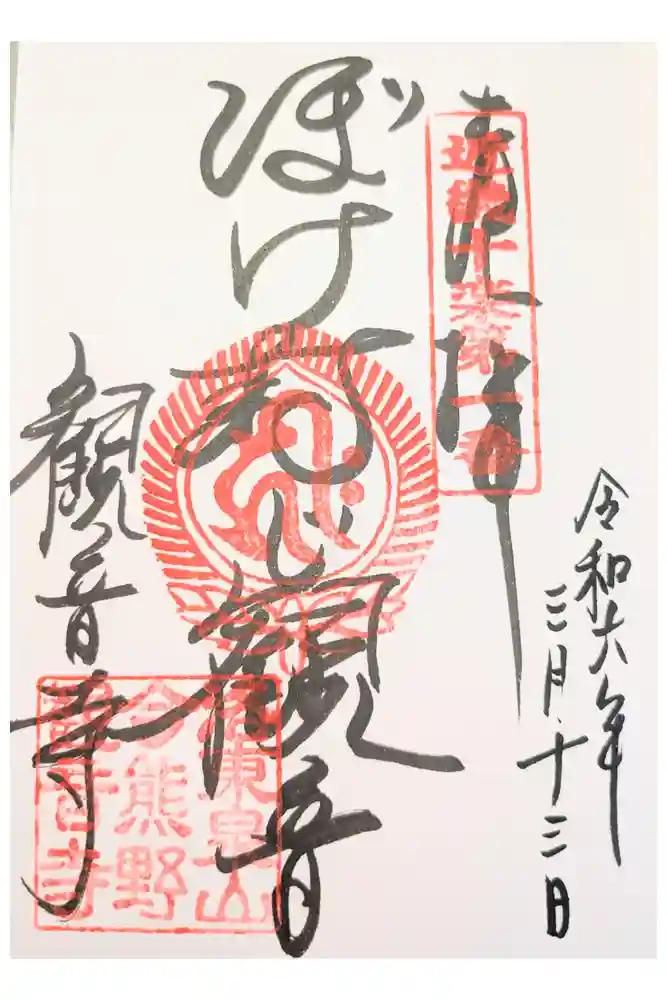 奉拝
近畿十楽第一番
令和六年
三月十三日
ぼけ封じ観音
観音寺
洛東泉山
今熊野
観音寺